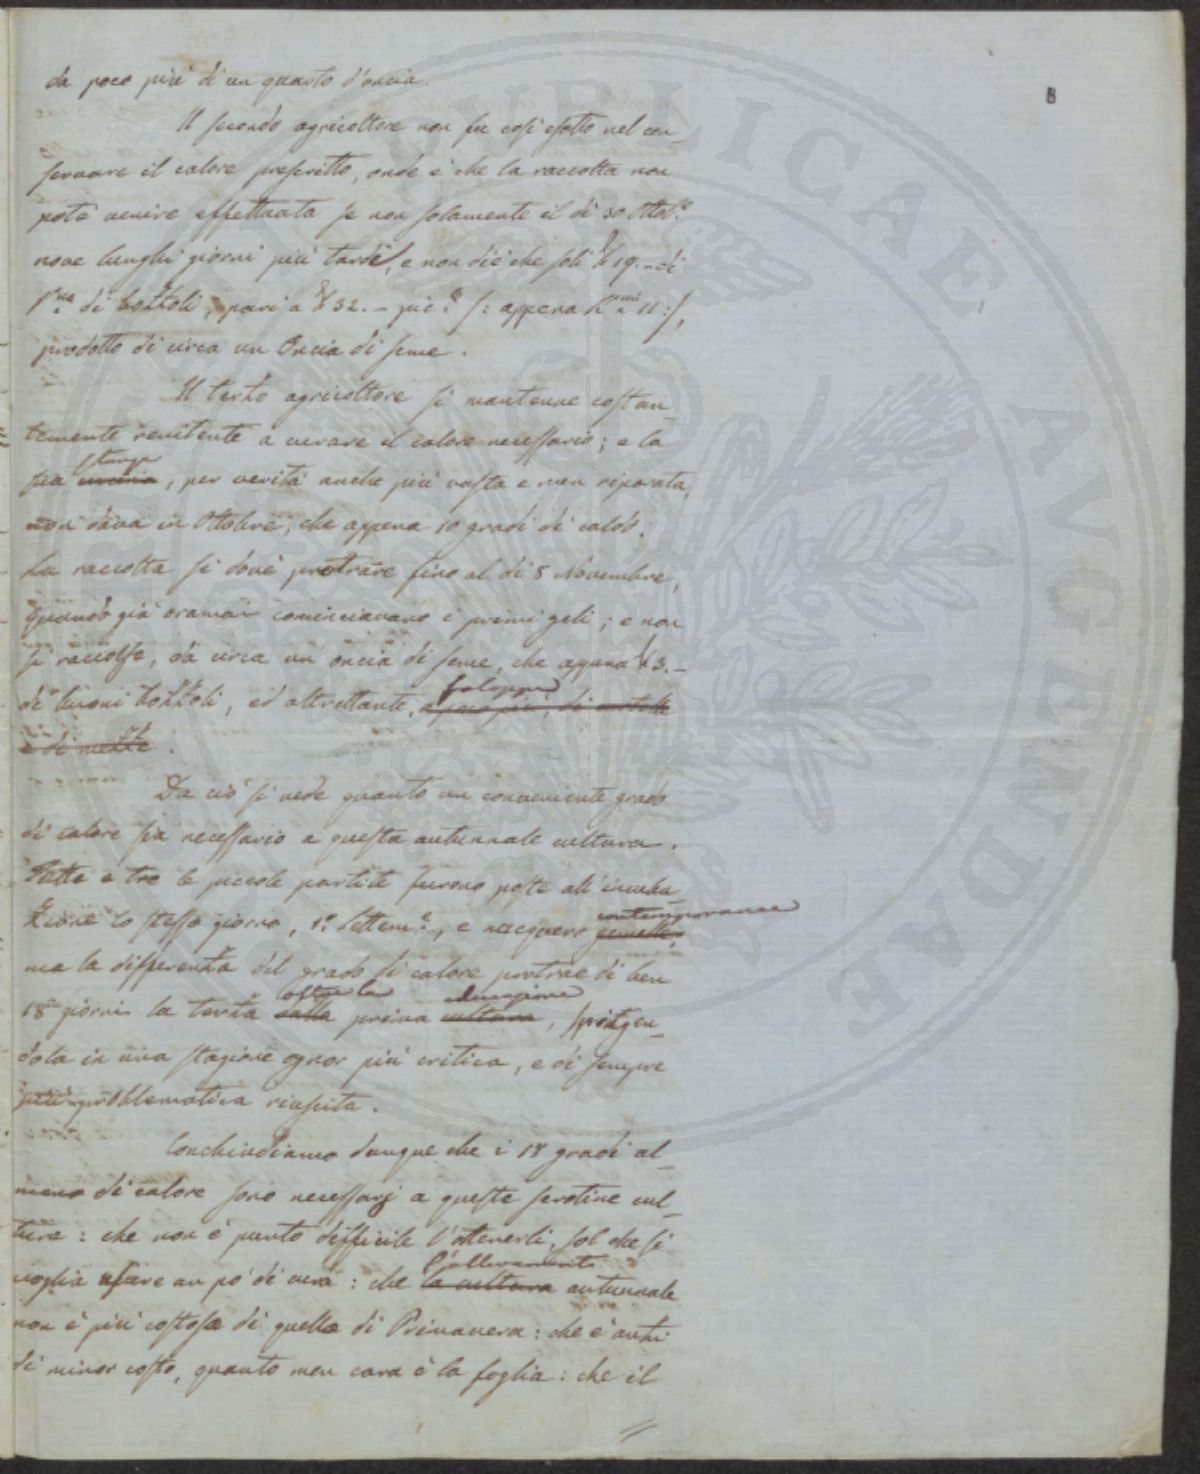 8
da poco più di un quarto d'oncia.
Il secondo agricoltore non fu così esatto nel con_
servare il calore prescritto, onde è che la raccolta non
potè venire effettuata se non solamente il dì 30 Ottob.e
nove lunghi giorni più tardi, e non diè che soli 19._ di
di bozzoli, pari a 32._ appena 11:/,
prodotto di circa un Oncia di seme.
Il terzo agricoltore si mantenne costan_
temente renitente a curare il calore necessario; e la
sua cucina stanza, per verità anche più vasta e men riparata,
non dava in Ottobre, che appena 10 gradi di caldo.
La raccolta si dovè protrarre fino al dì 8 Novembre,
quando già oramai cominciavano i primi geli; e non
si raccolse, da circa un' oncia di seme, che appena 3._
di buoni bozzoli, ed altrettante, faloppe
e di mezze.
Da ciò si vede quanto un conveniente grado
di calore sia necessario a questa autunnale cultura.
Tutte e tre le piccole partite furono poste all'incuba_
zione lo stesso giorno, 1.o Settem.e, e nacquero gemelle contemporanee,
ma la differenza del grado di calore protrae di ben
18 giorni la terza dalla oltre la prima cultura educazione, spingen_
dola in una stagione ognor più critica, e di sempre
più problematica riuscita.
Conchiudiamo dunque che i 18 gradi al_
meno di calore sono necessarj a queste serotine cul_
ture: che non è punto difficile l'ottenerli, sol che si
voglia usare un po' di cura: che la cultura l'allevamento autunnale
non è più costosa di quella di Primavera: che è anzi
di minor costo, quanto men cara è la foglia: che il
PUBLICAE AVGENDAE